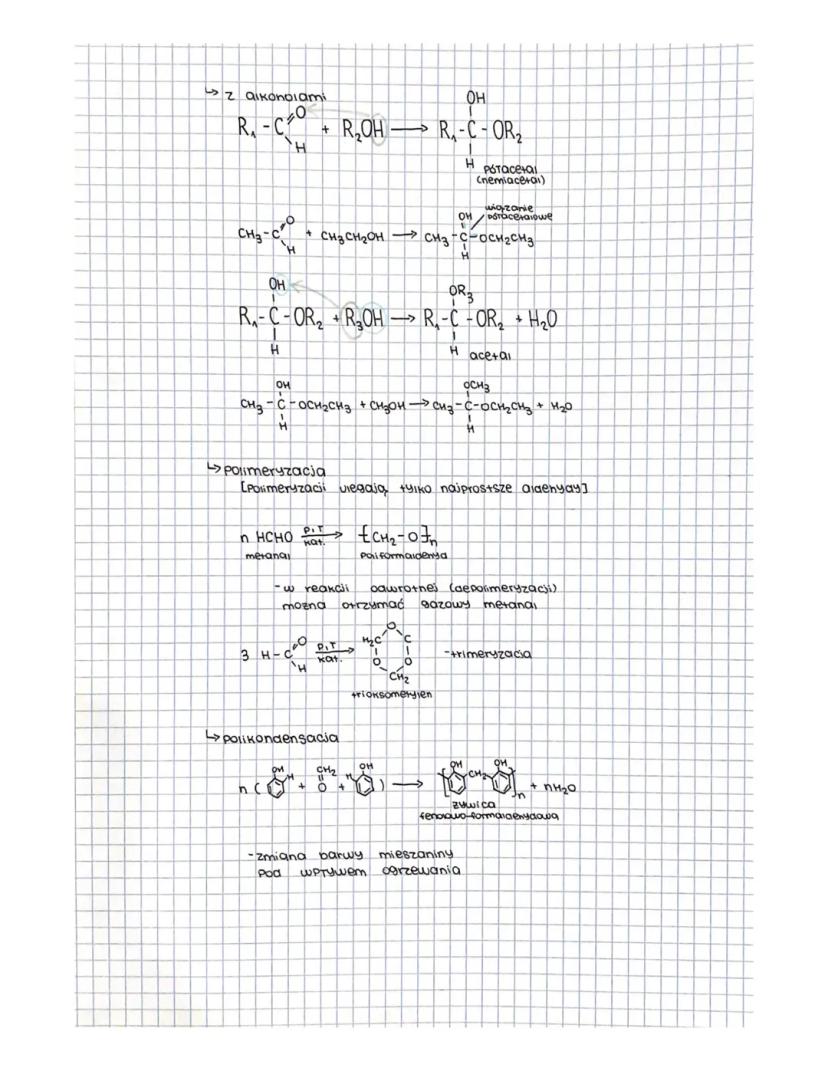 ↳ z alkoholami
R₁-C(=O)H + R₂OH ⟶ R₁-C(OH)(H)-OR₂
półacetal
(hemiacetal)
wiązanie
półacetalowe
CH₃-C(=O)H + CH₃CH₂OH ⟶ CH₃-C(OH)(H)-OCH₂CH₃
R₁-C(OH)(H)-OR₂ + R₃OH ⟶ R₁-C(OR₃)(H)-OR₂ + H₂O
acetal
CH₃-C(OH)(H)-OCH₂CH₃ + CH₃OH ⟶ CH₃-C(OCH₃)(H)-OCH₂CH₃ + H₂O
↳ polimeryzacja
[polimeryzacji ulegają tylko najprostsze aldehydy]
n HCHO p,T kat. ⟶ [CH₂-O]n
metanal poliformaldehyd
-w reakcji odwrotnej (depolimeryzacji)
można otrzymać gazowy metanal
3 H-C(=O)H p,T kat. ⟶ H₂C O C O CH₂ O -trimeryzacja
trioksometylen
↳ polikondensacja
n ( OH H + CH₂ O + H OH ) ⟶ [ OH CH₂ OH ]n + nH₂O
żywica
fenolowo-formaldehydowa
-zmiana barwy mieszaniny
pod wpływem ogrzewania